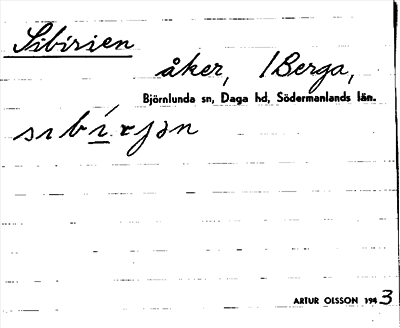 Sibirien
åker, 1 Berga,
Björnlunda sn, Daga hd, Södermanlands län.
sıbí̱rjən
ARTUR OLSSON 1943